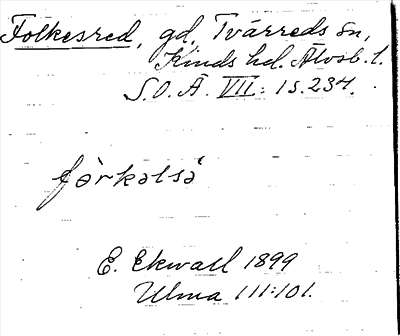 Folkesred, gd, Tvärreds sn,
Kinds hd. Älvsb. l.
S.O.Ä. VII: 1 s. 234.
förkəlsə
E. Ekwall 1899
Ulma 111:101.